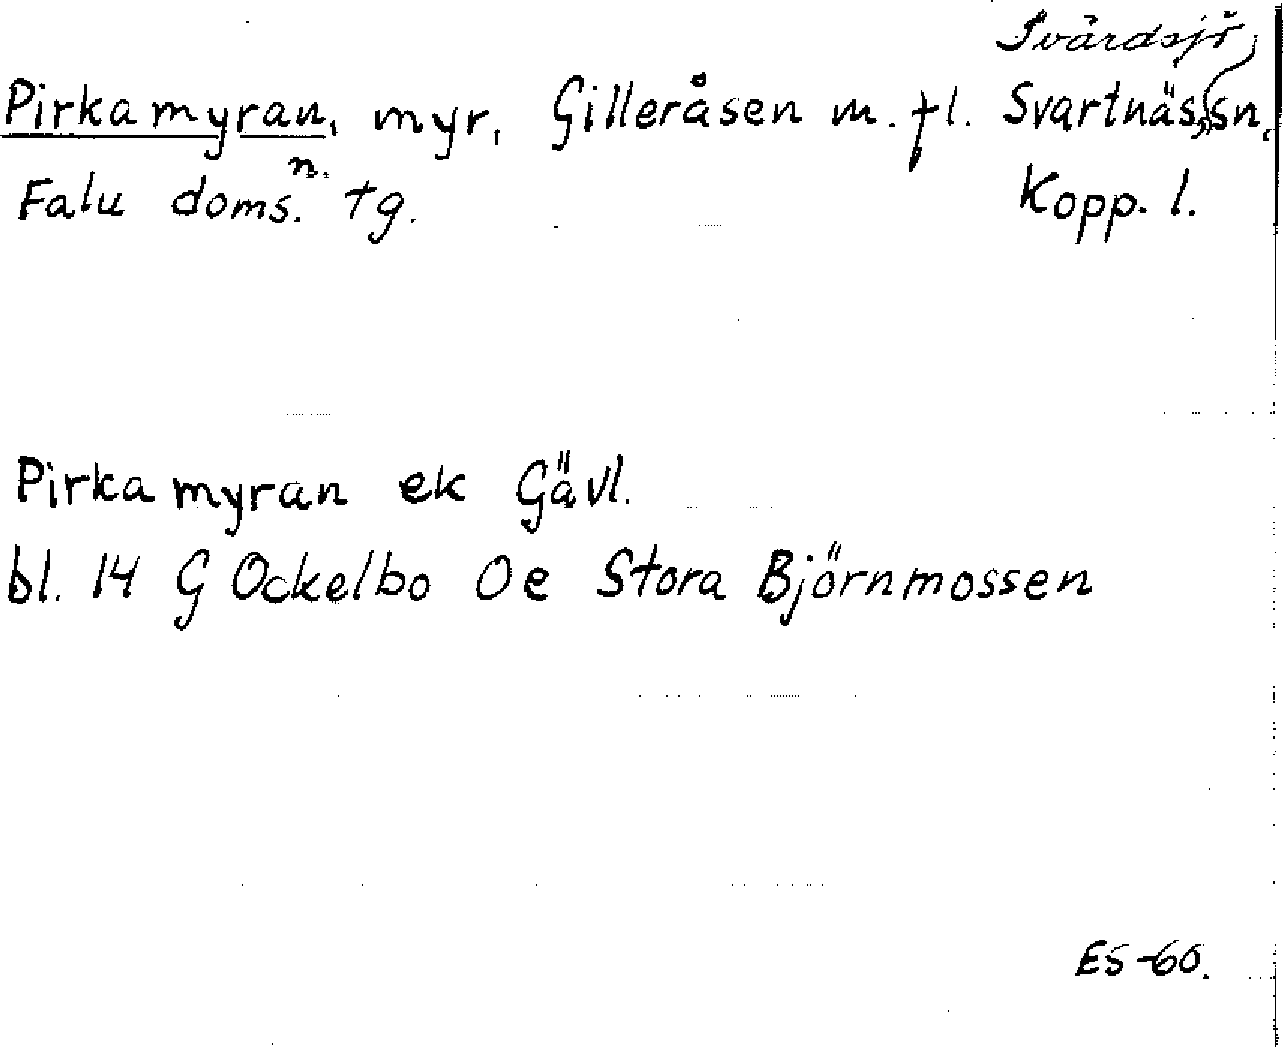 Svärdsjö
Pirkamyran, myr, Gilleråsen m. fl. Svartnäs, sn.
Falu doms. n. tg. Kopp. l.
Pirkamyran ek Gävl.
bl. 14 G Ockelbo Oe Stora Björnmossen
ES-60.